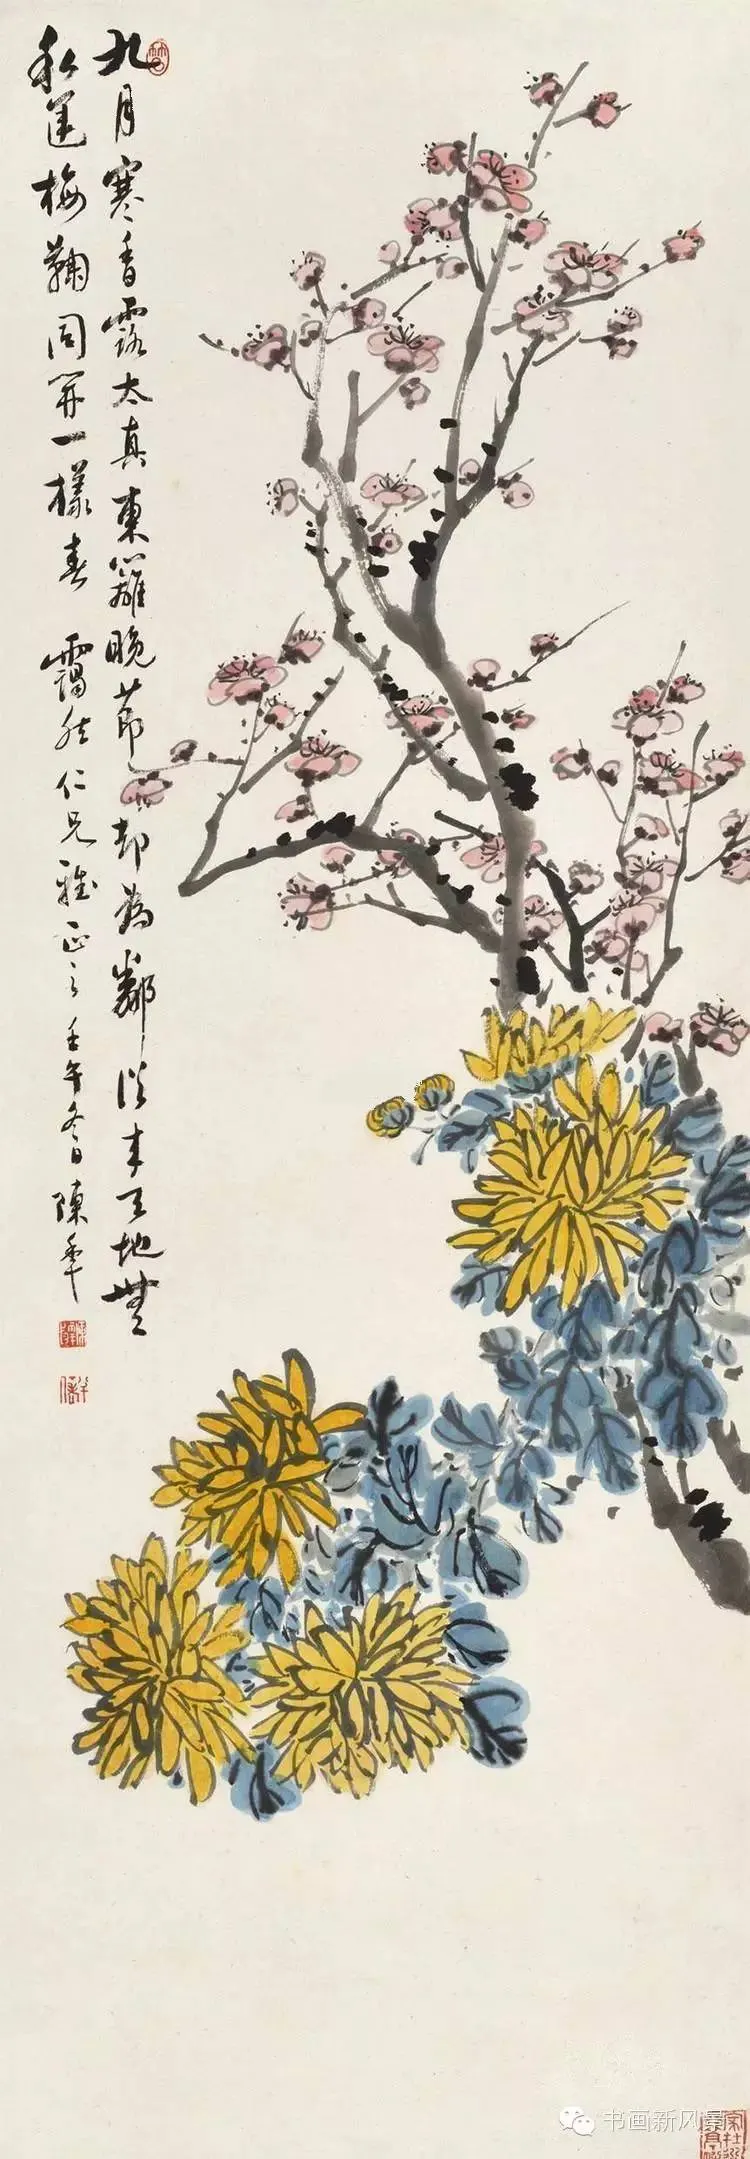 九月寒香露太真東籬晚節却為鄰從來天地無
私運梅鞠同開一樣春 靄然仁兄雅正之壬午冬日陳年
书画新风景